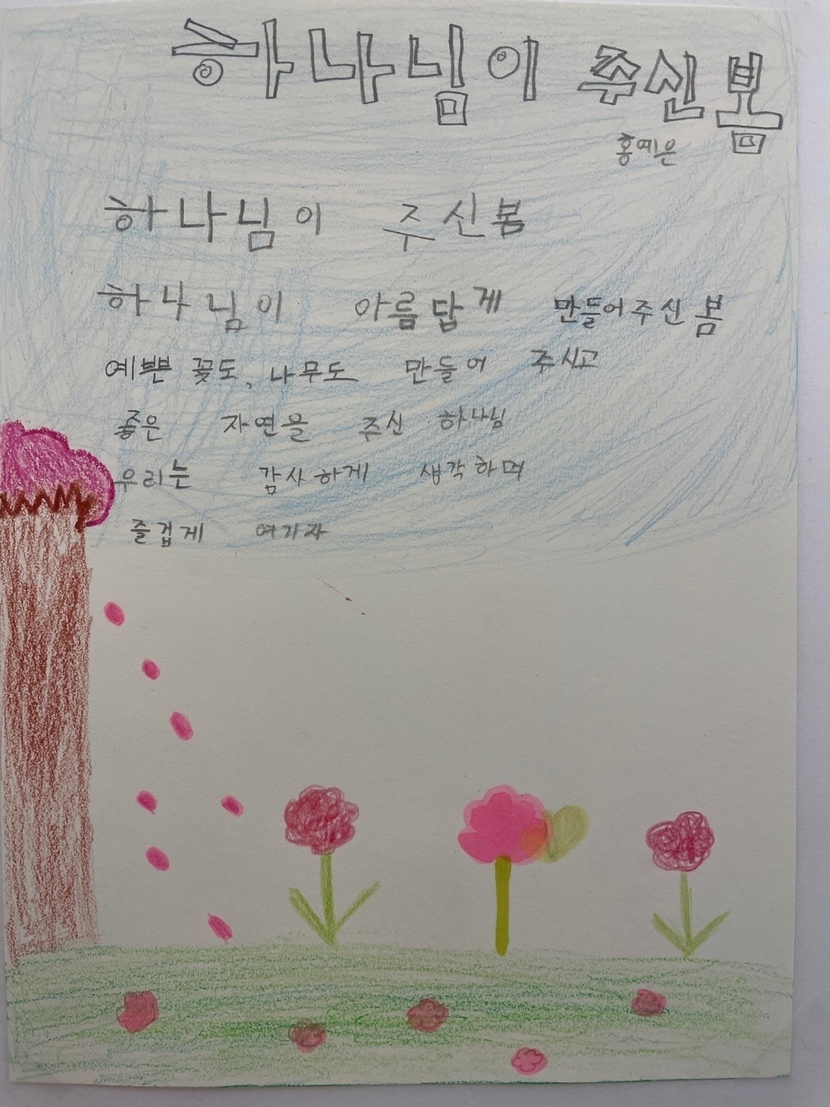 하나님이 주신 봄
홍예은
하나님이 주신봄
하나님이 아름답게 만들어주신 봄
예쁜 꽃도, 나무도 만들어 주시고
좋은 자연을 주신 하나님
우리는 감사하게 생각하며
즐겁게 여기자